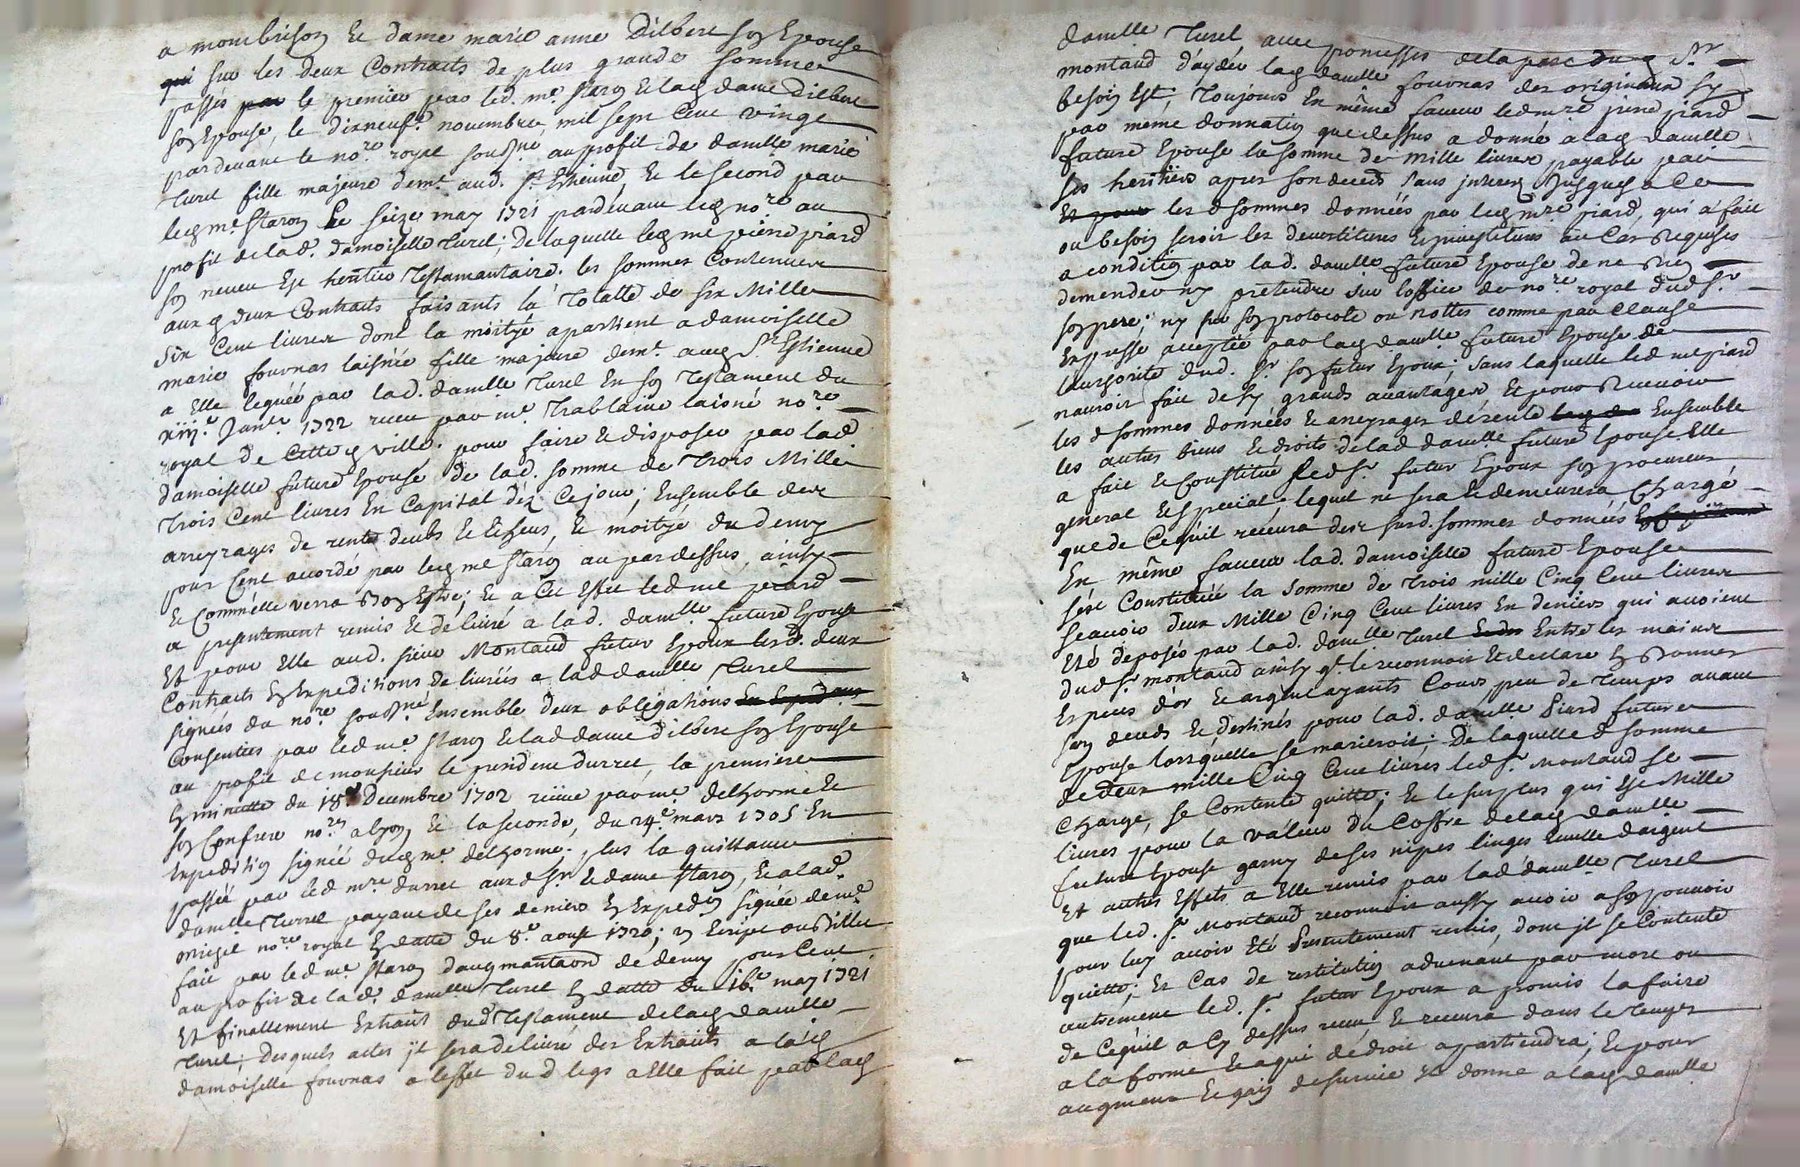 a monbrison Et dame marie anne Dilbert son Epouse
sur les deux Contracts de plus grande somme
passés le premier par led. me. staron Et lad dame Dilbert
son Epouse, le dixneufe. novembre, mil sept Cent vingt
pardevant le nore. royal souss.né au profit de damlle marie
turel fille majeure demt. aud. St. Estienne, Et le second par
led me. staron Le seize may 1721 pardevant led nore au
profit delad. damoiselle turel; De laquelle led me pierre piard
son neveu Est heritier Testamantaire. les sommes Contenues
aux d deux Contracts faisants la Totalle de six Mille
six Cent livres dont la moityé apartient a damoiselle
marie fournas laisnée fille majeure demt. aud St. Estienne
a Elle leguée par lad. damlle turel En son Testament du
xiije. Janer. 1722 receu par me. Trablaine laisné nore.
royal de Cette d ville. pour faire Et disposer par lad.
damoiselle future Epouse de lad. somme de Trois Mille
Trois Cent livres En Capital dez Cejour; Ensemble des
arreyrages de rente deubs Et Echeus, Et moityé du demy
pour Cent accordé par led me staron au pardessus, ainsy
Et Comm'elle verra bon Estre; Et a Cet Effet led me piard
a presentement remis Et delivré a lad. damlle. future Epouse
Et pour Elle aud. sieur Montaud futur Epoux lesd. deux
Contracts En Expeditions delivrées a lad damlle Turel
signées du nore. souss.né Ensemble deux obligations
Consenties par led me. staron Et lad dame dilbert son Epouse
au profit de monsieur le president durret, la premiere
En minutte du 18e. Decembre 1702 reçue par me. delhorme Et
son Confrere nores a lyon, Et la seconde, du 24e. mars 1705 En
Expedition signée dud me. delhorme. plus la quittance
passée par led mre. durret aux d Sr. Et dame staron, Et a lad.
damlle Turrel payant de ses deniers En Expedon signée de me.
michel nore. royal En datte du 8e. aoust 1720; un Ecript ou Billet
fait par led me. staron d'augmantaon de demy pour Cent
au profit de lad. damlle Turel En datte du 16e. may 1721
Et finallement Extrait dud Testament delad damlle
Turel; desquels actes jl sera delivré des Extraits a lad
damoiselle fournas a l'effet du d legs a Elle fait par lad
damlle Turel avec promesses de la part du d Sr.
montaud d'ayder lad damlle fournas des originaux sy
besoin Est, Toujours En même faveur led mre pierre piard
par meme donnation que dessus a donné a lad damlle
future Epouse la somme de mille livres payable par
ses heritiers apres son deces sans jnterest Jusques a Ce
les d sommes données par led mre piard, qui a fait
ou besoin seroit les devestitures Et jnvestitures au Cas Requises
a condition par lad. damlle future Epouse de ne Rien
demander ny pretendre sur l'office de nore. royal dud Sr.
son pere; ny sur son protocole ou nottes comme par Clause
Expresse acceptée par lad damlle future Epouse de
lauthorité dud. Sr. son futur Epoux; sans laquelle led me piard
nauroit fait de sy grands avantages Et pour Recevoir
les d sommes données Et arreyrages de rente Ensemble
les autres biens Et droits de lad damlle future Epouse Elle
a fait Et Constitué led Sr. futur Epoux son procureur
general Et special. lequel ne sera Et demeurera Chargé
que de Cequil recevra des susd. sommes données
En même faveur lad. damoiselle future Epouse
s'est Constituée la somme de Trois mille Cinq Cent livres
scavoir deux Mille Cinq Cent livres En deniers qui avoient
Eté deposés par lad. damlle Turel Entre les mains
dud Sr. montaud ainsy qt. le reconnoit Et declare En Bonnes
Especes d'or Et argent ayants Cours peu de Temps avant
son deceds Et destinés pour lad. damlle Piard future
Epouse lorsqu'elle se marieroit; De laquelle d somme
de deux mille Cinq Cent livres led Sr. Montaud se
charge, se Contente quitte; Et le surplus qui Est Mille
livres pour la valeur du Coffre delad damlle
future Epouse garny de ses nipes linges d'argent
Et autres Effets a Elle remis par lad damlle. Turel
que led. Sr. Montaud reconnoit aussy avoir a son pouvoir
pour luy avoir Eté Presentement remis, dont jl se Contente
quitte; En Cas de restitution advenant par mort ou
autrement led. Sr. futur Epoux a promis la faire
de Cequil a Cy dessus receu Et recevra dans le Temps
a la forme Et a qui de droit apartiendra; Et pour
augment Et gain de survie Il donne a lad damlle